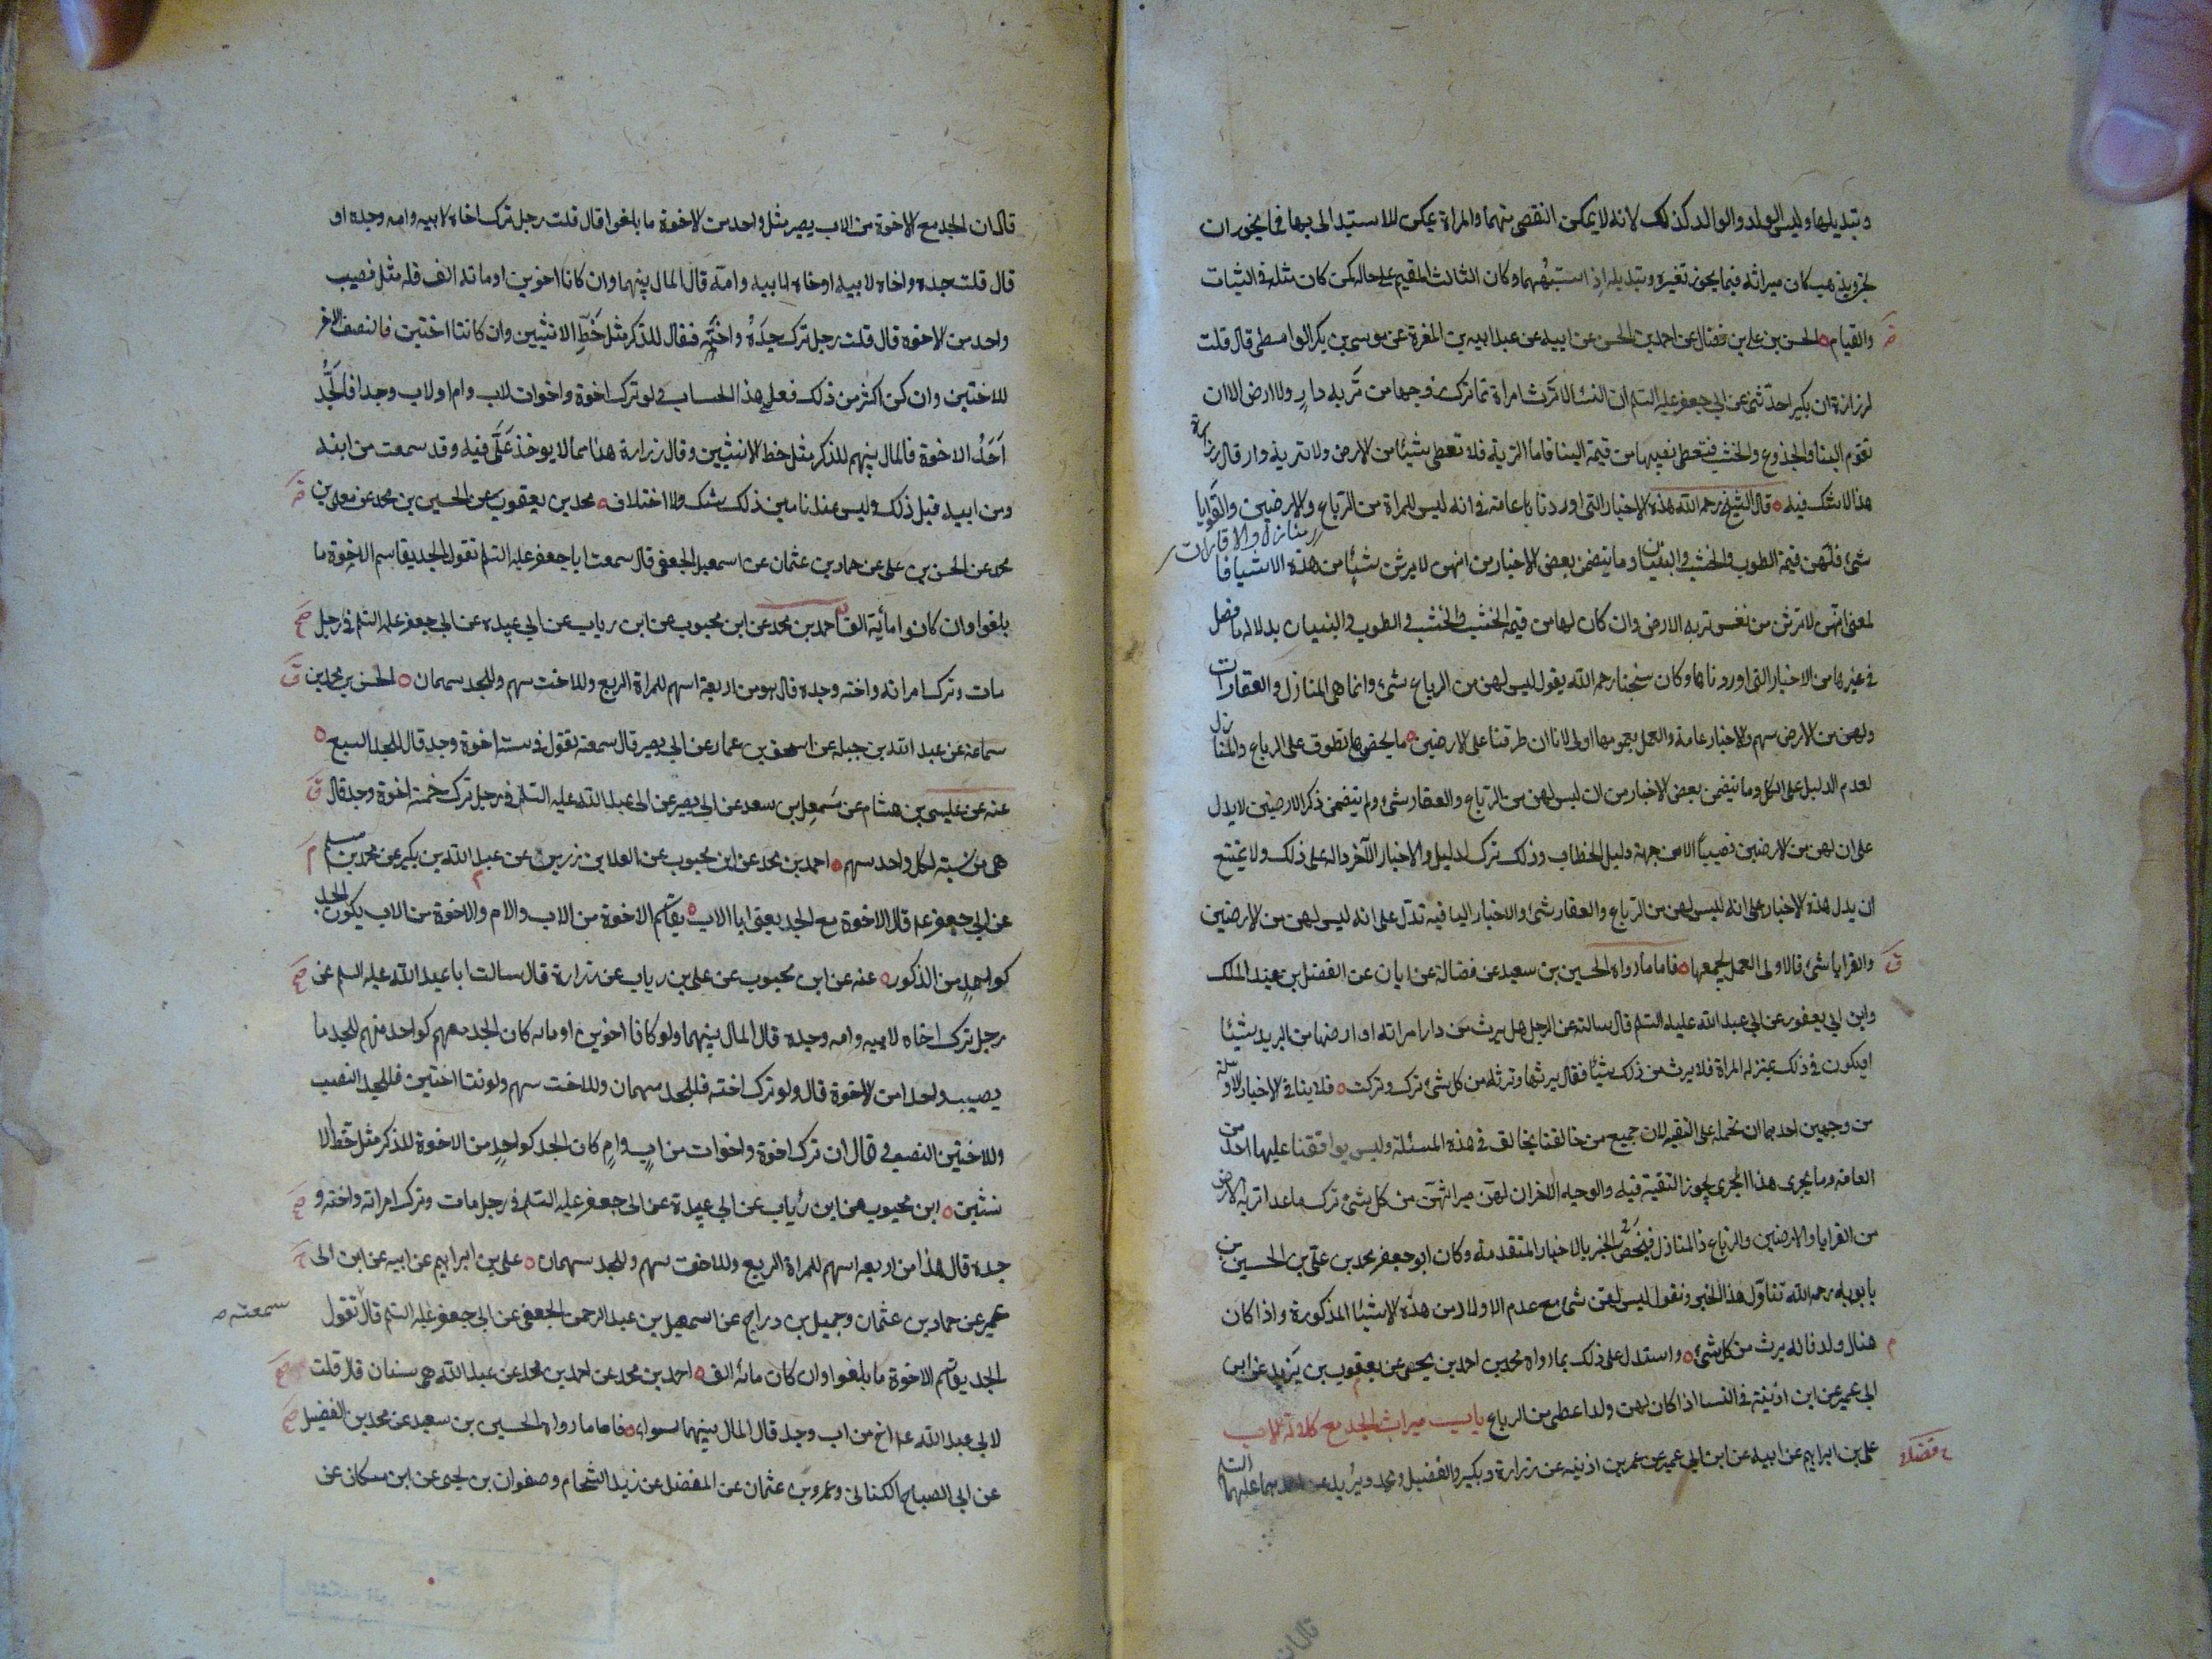 وتبديلها وليس الولد والوالد كذلك لانه لا يمكن التفصي منهما والمراة يمكن الاستبدال بها فما يجوز ان
يجي ويذهب كان ميراثه فيما يجوز تغيره وتبديله اذ اشبههما وكان الثالث المقيم على حاله كمن كان مثله في الثبات
والقيام الحسن بن علي بن فضال عن احمد بن الحسن عن ابيه عن عبد الله بن المغرة عن موسى بن بكر الواسطي قال قلت
لزرارة ان بكيرا حدثني عن ابي جعفر عليه السلم ان النسا لا ترث امراة مما ترك زوجها من تربه دار ولا ارض الا ان
تقوم البنا والجذوع والخشب فتعطى نصيبها من قيمة البنا فاما التربة فلا تعطى شيئا من الارض ولا تربة دار قال زرارة
هذا لاشك فيه قال الشيخ رحمه الله هذه الاخبار التي اوردناها عامة في انه ليس للمراة من الرباع والارضين والقرايا
منازل والاقارات
شئ فلهن قيمة الطوب والخشب والبنيان وما يتضمن بعض الاخبار من انهن لا يرثن شيئا من هذه الاشيا فا
لمعنى انهن لا ترثن من نفس تربه الارض وان كان لها من قيمه الخشب والخشب والطوب والبنيان بدلاله ما فصل
في غيرها من الاخبار التي اوردناها وكان شيخنا رحمه الله يقول ليس لهن من الرباع شئ وانما هي المنازل والعقارات
ولهن من الارض سهم والاخبار عامة والعمل بعمومها اولى لانا ان طرقنا على الارضين ما يخصها تطرق على الرباع والمنازل
لعدم الدليل على الكل وما يتضمن بعض الاخبار من ان ليس لهن من الرباع والعقار شئ ولم يتضمن ذكر الارضين لا يدل
على ان لهن من الارضين نصيبا الا من جهة دليل الخطاب وذلك ترك لدليل والاخبار الاخر داله على ذلك ولا يمتنع
ان يدل هذه الاخبار على انه ليس لهن من الرباع والعقار شئ والاخبار الباقيه تدل على انه ليس لهن من الارضين
والقرايا شئ فالاولى العمل بجمعها فاما ما رواه الحسين بن سعيد عن فضالة عن ابان عن الفضل بن عبد الملك
وابن ابي يعفور عن ابي عبد الله عليه السلم قال سالته عن الرجل هل يرث من دار امراته او ارضها من التربه شيئا
او يكون في ذلك بمنزله المراة فلا يرث من ذلك شيئا فقال يرثها وترثه من كل شئ ترك وتركت فلا ينافي الاخبار الاولة
من وجهين احدهما ان نحمله على التقيه لان جميع من خالفنا يخالف في هذه المسئلة وليس يوافقنا عليها احد من
العامه وما يجري هذا المجرى يجوز التقية فيه والوجه الاخر ان لهن ميراثهن من كل شئ ترك ما عدا تربة الارض
من القرايا والارضين والرباع والمنازل فيخص الخبر بالاخبار المتقدمة وكان ابو جعفر محمد بن علي بن الحسين بن
بابويه رحمه الله تناول هذا الخبر ونقول ليس لهن شئ مع عدم الاولاد من هذه الاشيا المذكورة واذا كان
هناك ولد فانه يرث من كل شئ واستدل على ذلك بما رواه محمد بن احمد بن يحيى عن يعقوب بن يزيد عن ابن
ابي عمير عن ابن اذينة في النسا اذا كان لهن ولد اعطين من الرباع باب ميراث الجد مع كلالة الاب
علي بن ابراهيم عن ابيه عن ابن ابي عمير عن عمر بن اذينه عن زرارة وبكير والفضيل ومحمد وبريد عن احدهما عليهما السلم
قال ان
قال ان الجد مع الاخوة من الاب يصير مثل واحد من الاخوة ما بلغوا قال قلت رجل ترك اخاه لابيه وامه وجده او
قال قلت جده واخاه لابيه او اخاه لابيه وامه قال المال بينهما وان كانا اخوين او مائه الف فله مثل نصيب
واحد من الاخوه قال قلت رجل ترك جده واخته فقال للذكر مثل حظ الانثيين وان كانتا اختين فالنصف للجد والنصف الاخر
للاختين وان كن اكثر من ذلك فعلى هذا الحساب ولو ترك اخوة واخوات لاب وام او لاب وجدا فالجد
احد الاخوة فالمال بينهم للذكر مثل حظ الانثيين وقال زرارة هذا مما لا يوخذ علي فيه وقد سمعت من ابنه
ومن ابيه قبل ذلك وليس عندنا من ذلك شك ولا اختلاف محمد بن يعقوب عن الحسين بن محمد عن معلى بن
محمد عن الحسن بن علي عن حماد بن عثمان عن اسمعيل الجعفي قال سمعت ابا جعفر عليه السلم تقول الجد يقاسم الاخوة ما
بلغوا وان كانوا مأية الف احمد بن محمد عن ابن محبوب عن ابن رياب عن ابي عبيده عن ابي جعفر عليه السلم في رجل
مات وترك امراته واخته وجده قال هو من اربعة اسهم للمراة الربع وللاخت سهم وللجد سهمان الحسن بن محمد بن
سماعه عن عبد الله بن جبله عن اسحق بن عمار عن ابي بصير قال سمعته تقول في ستة اخوة وجد قال للجد السبع
عنه عن عليسى بن هشام عن شمعل بن سعد عن ابي بصير عن ابي عبد الله عليه السلم في رجل ترك خمسة اخوة وجد قال
هي من ستة لكل واحد سهم احمد بن محمد عن ابن محبوب عن العلا بن زرين عن عبد الله بن بكير عن محمد بن مسلم
عن ابي جعفر عم قال الاخوة مع الجد يعني ابا الاب يقاسم الاخوة من الاب والام والاخوة من الاب يكون الجد
كواحد من الذكور عنه عن ابن محبوب عن علي بن رياب عن زرارة قال سالت ابا عبد الله عليه السلم عن
رجل ترك اخاه لابيه وامه وجده قال المال بينهما ولو كانا اخوين او مائه كان الجد معهم كواحد منهم للجد ما
يصيب واحدا من الاخوة قال ولو ترك اخته فللجد سهمان وللاخت سهم ولو كانتا اختين فللجد النصف
وللاختين النصف قال ان ترك اخوة واخوات من اب وام كان الجد كواحد من الاخوة للذكر مثل حظ الا
نثيين ابن محبوب عن ابن رئاب عن ابي عبيدة عن ابي جعفر عليه السلم في رجل مات وترك امراته واخته و
جده قال هذا من اربعه اسهم للمراة الربع وللاخت سهم وللجد سهمان علي بن ابراهيم عن ابيه عن ابن ابي
عمير عن حماد بن عثمان وجميل بن دراج عن اسمعيل بن عبد الرحمن الجعفي عن ابي جعفر عليه السلم قال تقول
سمعته
الجد يقاسم الاخوة ما بلغوا وان كان مائه الف احمد بن محمد عن احمد بن محمد عن عبد الله بن سنان قال قلت
لابي عبد الله عم اخ من اب وجد قال المال بينهما سواء فاما ما رواه الحسين بن سعيد عن محمد بن الفضيل
عن ابي الصباح الكناني وعمرو بن عثمان عن المفضل عن زيد الشحام وصفوان بن يحيى عن ابن مسكان عن